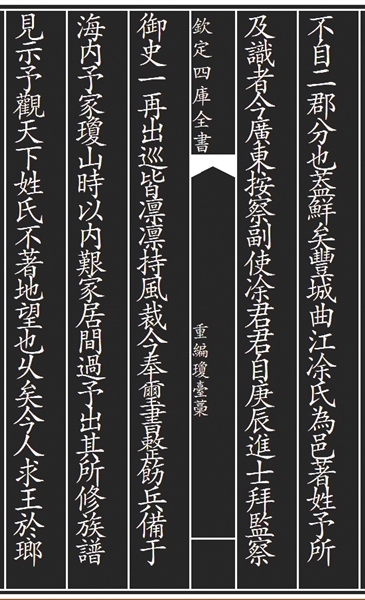 不自二郡分也蓋鮮矣豐城曲江涂氏為邑著姓予所
及識者今廣東按察副使涂君君自庚辰進士拜監察
欽定四庫全書
重編瓊臺藁
御史一再出巡皆凛凛持風裁今奉璽書整飭兵備于
海内予家瓊山時以内艱家居間過予出其所修族譜
見示予觀天下姓氏不著地望也乆矣今人求王於瑯